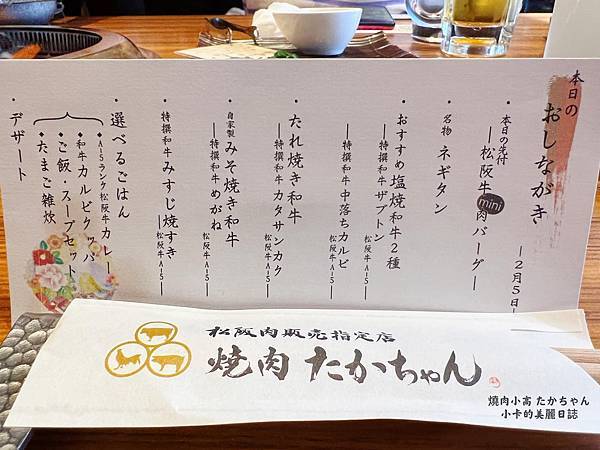 本日の
おしながき
―2月5日―
・本日の先付
―松阪牛mini肉バーグ―
・名物 ネギタン
・おすすめ塩焼和牛2種
―特撰和牛ザブトン 松阪牛A-5―
―特撰和牛中落ちカルビ 松阪牛A-5―
・たれ焼き和牛
―特撰和牛カタサンカク 松阪牛A-5―
・自家製みそ焼き和牛
―特撰和牛めがね 松阪牛A-5―
・特撰和牛みすじ焼すき 松阪牛A-5―
・選べるごはん
◆A-5ランク松阪牛カレー
◆和牛カルビクッパ
◆ご飯・スープセット
◆たまご雑炊
・デザート
松阪肉販売指定店
焼肉 たかちゃん
燒肉小高 たかちゃん
小卡的美麗日誌